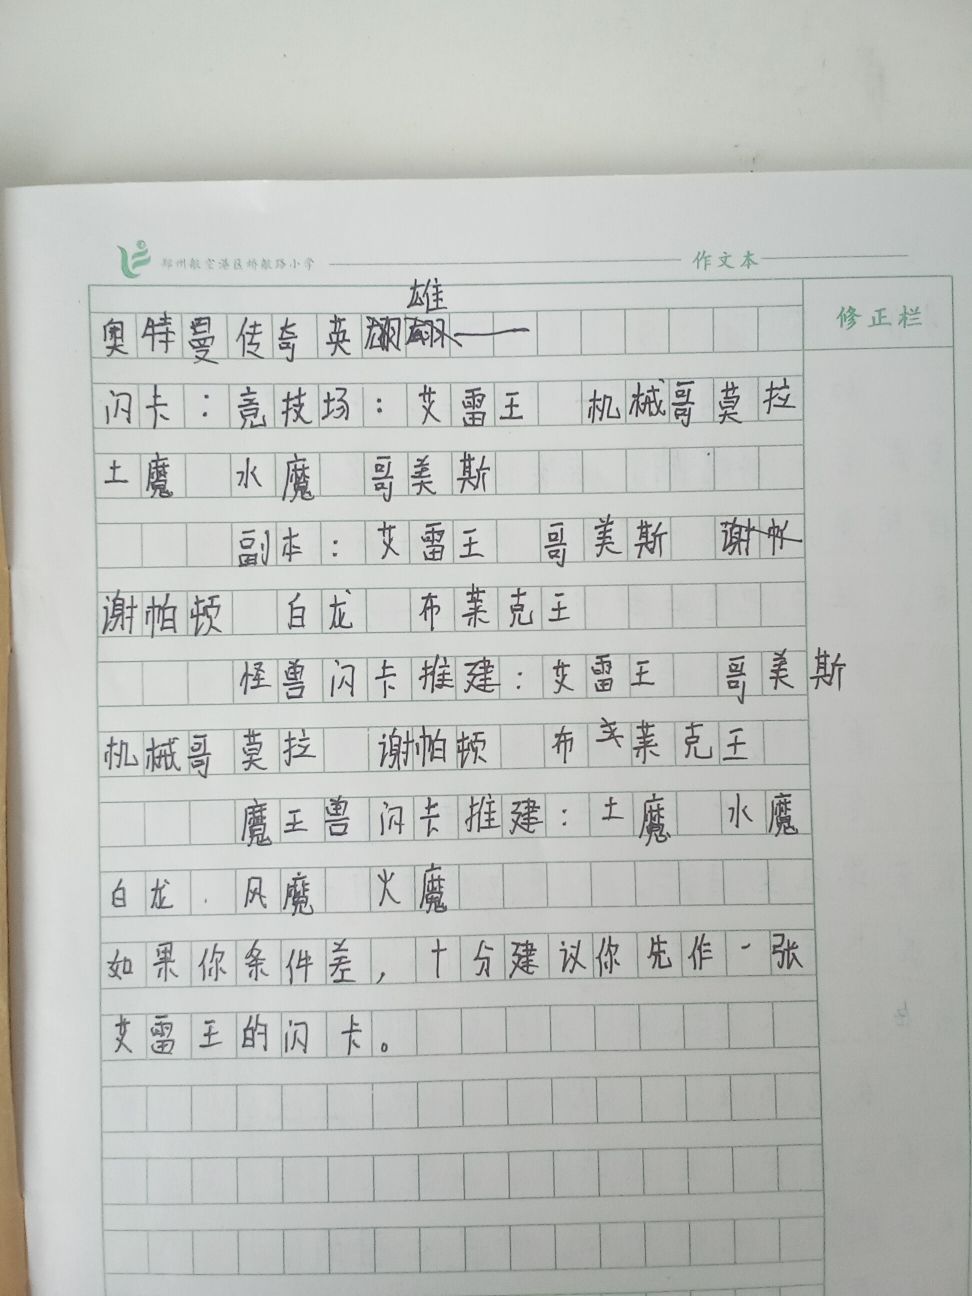 郑州航空港区娇航路小学 作文本
修正栏
奥特曼传奇英雄——
闪卡：竞技场：艾雷王 机械哥莫拉
土魔 水魔 哥美斯
副本：艾雷王 哥美斯 谢帕
谢帕顿 白龙 布莱克王
怪兽闪卡推建：艾雷王 哥美斯
机械哥莫拉 谢帕顿 布莱克王
魔王兽闪卡推建：土魔 水魔
白龙 风魔 火魔
如果你条件差，十分建议你先作一张
艾雷王的闪卡。